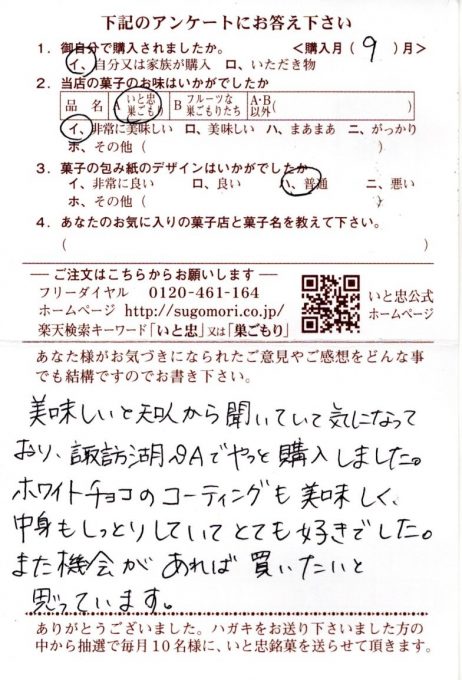 下記のアンケートにお答え下さい
1．御自分で購入されましたか。　＜購入月（ 9 ）月＞
イ、自分又は家族が購入　ロ、いただき物
2．当店の菓子のお味はいかがでしたか
品　名　A いと忠 巣ごもり　B フルーツな 巣ごもりたち　A・B 以外（　　　）
イ、非常に美味しい　ロ、美味しい　ハ、まあまあ　ニ、がっかり
ホ、その他（　　　）
3．菓子の包み紙のデザインはいかがでしたか
イ、非常に良い　ロ、良い　ハ、普通　ニ、悪い
ホ、その他（　　　）
4．あなたのお気に入りの菓子店と菓子名を教えて下さい。
（　　　）
― ご注文はこちらからお願いします ―
フリーダイヤル　0120-461-164
ホームページ　http://sugomori.co.jp/
楽天検索キーワード「いと忠」又は「巣ごもり」
いと忠公式
ホームページ
あなた様がお気づきになられたご意見やご感想をどんな事
でも結構ですのでお書き下さい。
美味しいと知人から聞いていて気になって
おり、諏訪湖SAでやっと購入しました。
ホワイトチョコのコーティングも美味しく、
中身もしっとりしていてとても好きでした。
また機会があれば買いたいと
思っています。
ありがとうございました。ハガキをお送り下さいました方の
中から抽選で毎月10名様に、いと忠銘菓を送らせて頂きます。